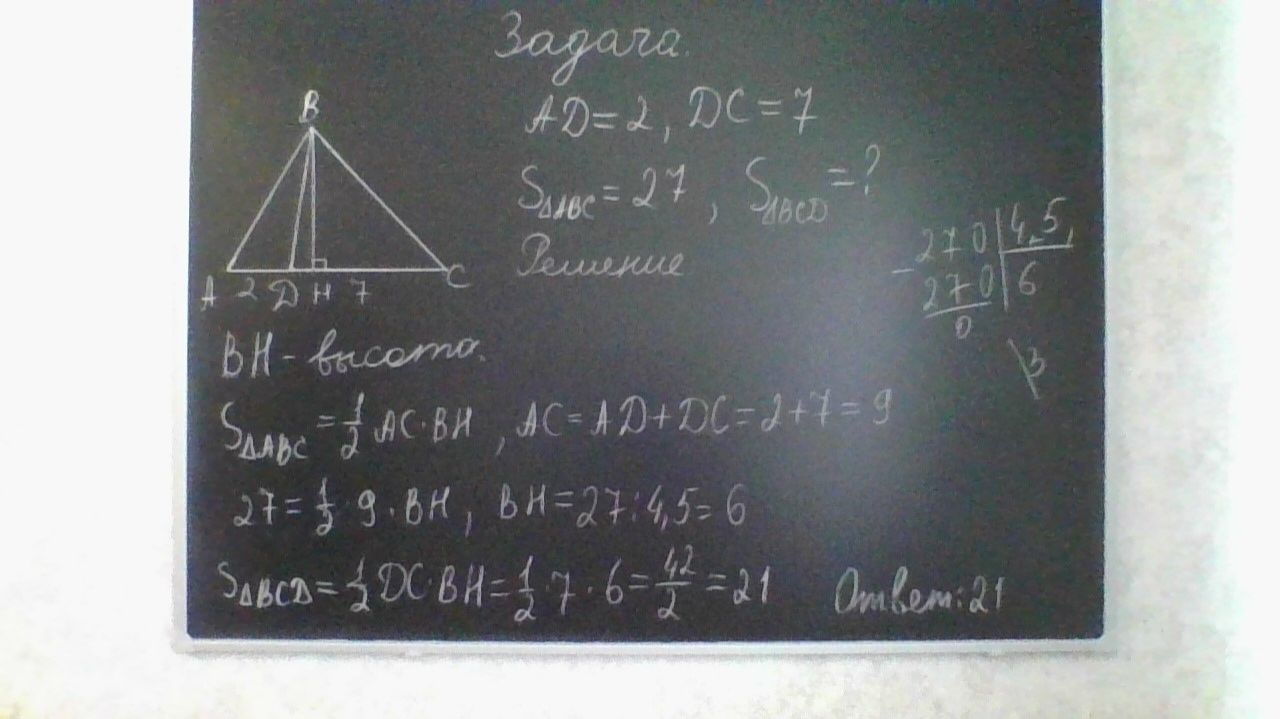 Задача.
AD=2, DC=7
S△ABC=27, S△BCD=?
Решение
B
A 2 D H 7 C
270 | 4,5
- 270 | 6
0
BH - высота.
S△ABC = 1/2 AC·BH, AC=AD+DC=2+7=9
27 = 1/2 · 9 · BH, BH=27:4,5=6
S△BCD = 1/2 DC·BH = 1/2 · 7 · 6 = 42/2 = 21 Ответ: 21